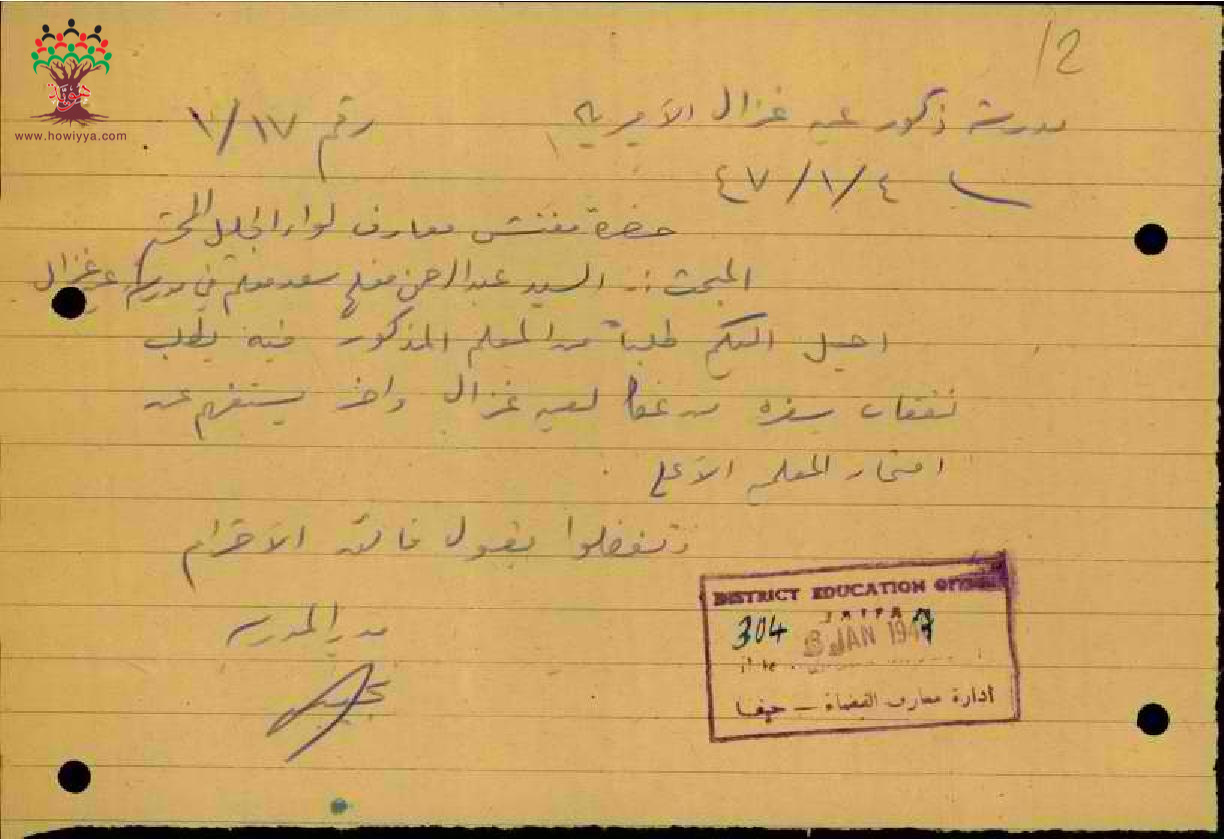 12
www.howiyya.com
مدرسة ذكور عين غزال الأميرية
رقم ١/١٧
٤٧/١/٤
حضرة مفتش معارف لواء الجليل المحترم
المبحث :- السيد عبد الرحمن مفلح سعد معلم في مدرسة عين غزال
احيل اليكم طلباً من المعلم المذكور فيه يطلب
نفقات سفره من لعين غزال وآخر يستفهم عن
امتحان المعلمين الأعلى .
وتفضلوا بقبول فائق الاحترام
مدير المدرسة
DISTRICT EDUCATION OFFICE
HAIFA
304 8 JAN 1947
ادارة معارف القضاء – حيفا